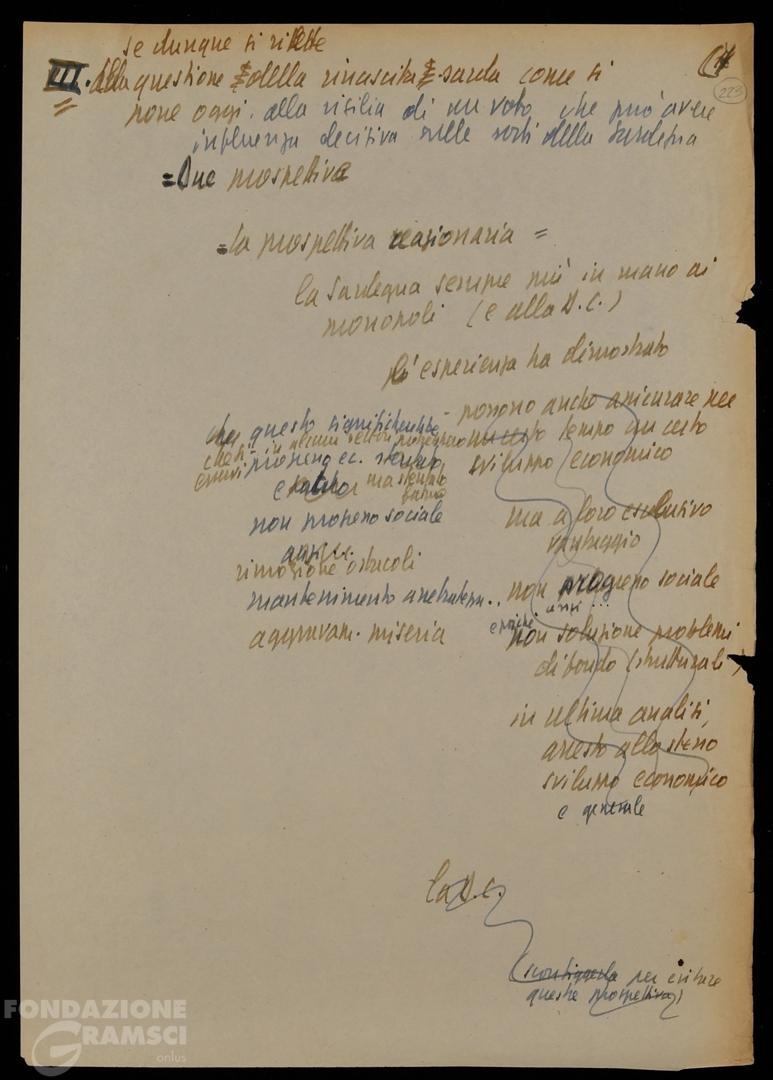 se dunque si riflette
III. alla questione della rinascita sarda come si
pone oggi, alla vigilia di un voto, che può avere
influenza decisiva sulle sorti della Sardegna
= Due prospettive
= la prospettiva reazionaria =
la Sardegna sempre più in mano ai
monopoli (e alla D.C.)
L'esperienza ha dimostrato
che questo significherebbe
in alcuni settori progresso
progresso ec. stentato
ma stentato
non progresso sociale
anzi ...
rimozione ostacoli
mantenimento arretratezza..
aggravam. miseria
- possono anche assicurare per
un certo tempo un certo
sviluppo economico
ma a loro esclusivo
vantaggio
non progresso sociale
anzi ...
e poiché non soluzione problemi
di fondo (strutturali)
in ultima analisi,
arresto allo stesso
sviluppo economico
e generale
la D.C.
(sconfiggerla per evitare
queste prospettive)
223
FONDAZIONE
GRAMSCI
onlus